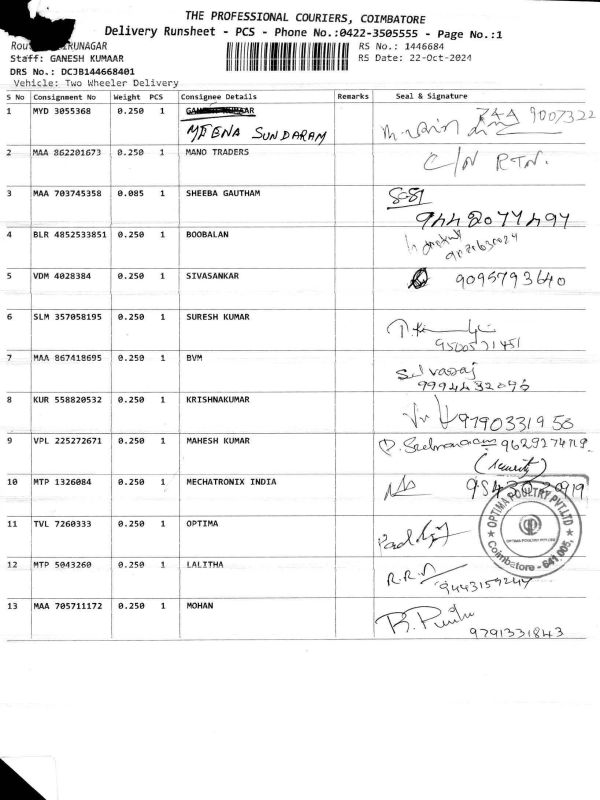 THE PROFESSIONAL COURIERS, COIMBATORE
Delivery Runsheet - PCS - Phone No.:0422-3505555 - Page No.:1
RS No.: 1446684
Staff: GANESH KUMAAR RS Date: 22-Oct-2024
DRS No.: DCJB144668401
Vehicle: Two Wheeler Delivery
S No Consignment No Weight PCS Consignee Details Remarks Seal & Signature
1 MYD 3055368 0.250 1
MEENA SUNDARAM 9007322
2 MAA 862201673 0.250 1 MANO TRADERS C/N RTN.
3 MAA 703745358 0.085 1 SHEEBA GAUTHAM
9442077497
4 BLR 4852533851 0.250 1 BOOBALAN
5 VDM 4028384 0.250 1 SIVASANKAR 9095793640
6 SLM 357058195 0.250 1 SURESH KUMAR
9500571451
7 MAA 867418695 0.250 1 BVM Selvaraj
9994432096
8 KUR 558820532 0.250 1 KRISHNAKUMAR 9790331958
9 VPL 225272671 0.250 1 MAHESH KUMAR 9629274719
(security)
10 MTP 1326084 0.250 1 MECHATRONIX INDIA
11 TVL 7260333 0.250 1 OPTIMA
OPTIMA POULTRY PVT LTD
OPTIMA POULTRY PVT LTD
Coimbatore - 641 005.
12 MTP 5043260 0.250 1 LALITHA R.R.
9443159244
13 MAA 705711172 0.250 1 MOHAN
9791331843